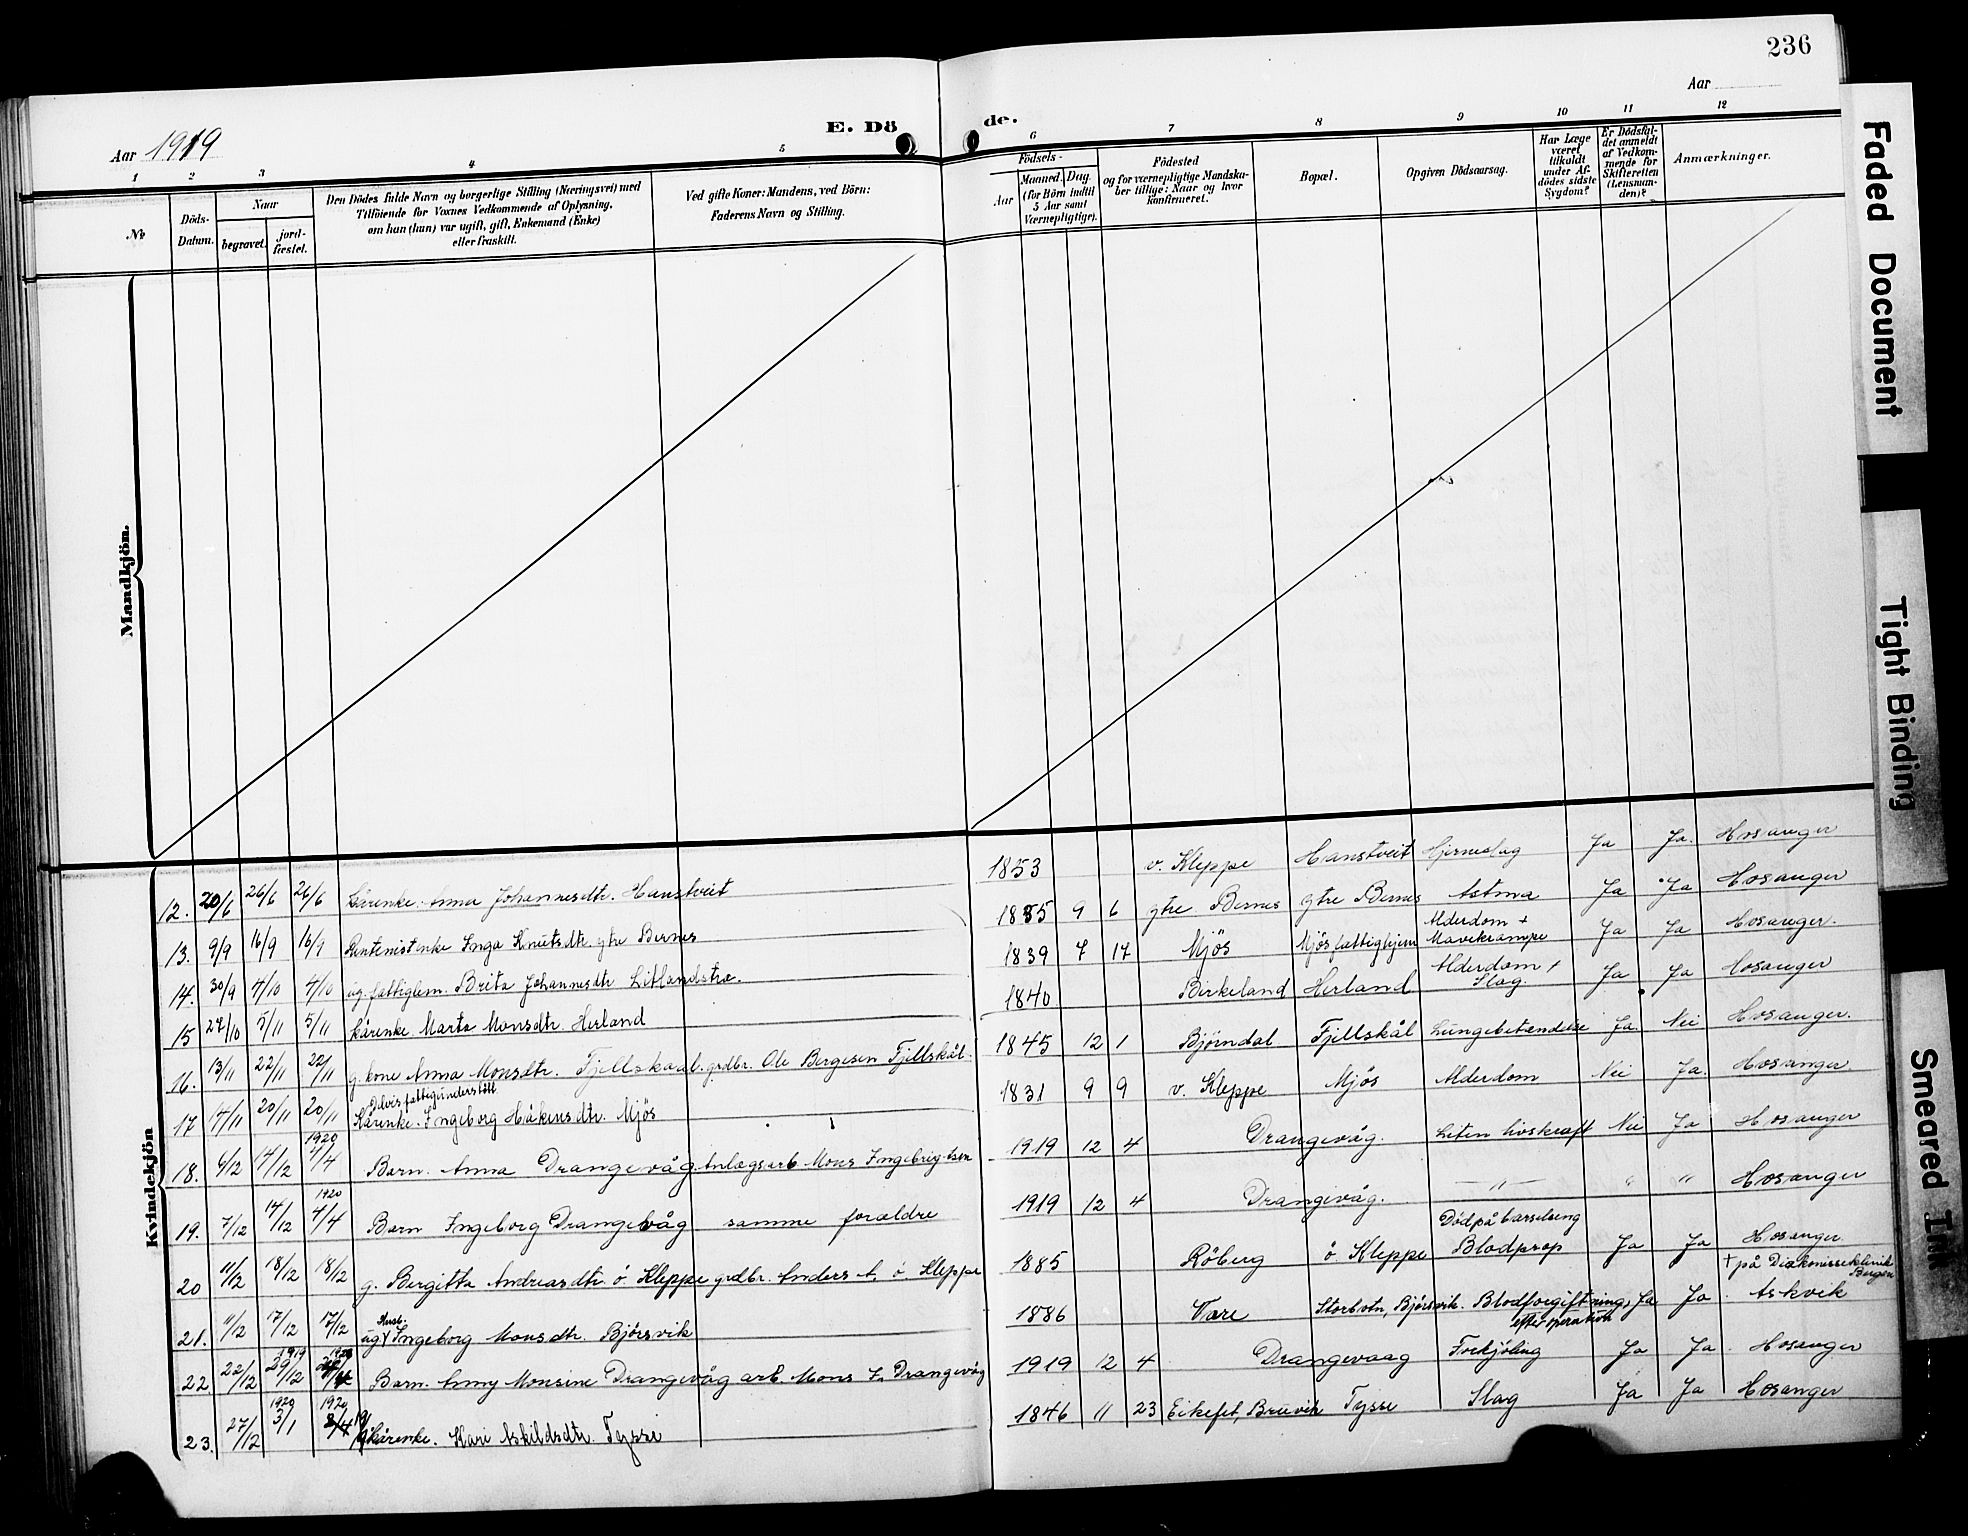 236
Aar 1919
E. Döde.
Aar
1 2 3 4 5 6 7 8 9 10 11 12
№
Döds-
Datum.
Naar
begravet.
jord-
fæstet.
Den Dödes fulde Navn og borgerlige Stilling (Næringsvei) med
Tilföiende for Voxnes Vedkommende af Oplysning,
om han (hun) var ugift, gift, Enkemand (Enke)
eller fraskilt.
Ved gifte Koner: Mandens, ved Börn:
Faderens Navn og Stilling.
Födsels-
Aar
Maaned. Dag.
(for Börn indtil
5 Aar samt
Værnepligtige).
Födested
og for værnepligtige Mandska-
ber tillige: Naar og hvor
konfirmeret.
Bopæl.
Opgiven Dödsaarsag.
Har Læge
været
tilkaldt
under Af-
dödes sidste
Sygdom?
Er Dödsfal-
det anmeldt
af Vedkom-
mende for
Skifteretten
(Lensman-
den)?
Anmærkninger.
Mandkjön.
Kvindekjön
12. 20/6 26/6 26/6 Kårenke. Anna Johannesdtr. Hanstveit 1853 v. Kleppe Hanstveit Hjerneslag Ja Ja. Hosanger
13. 9/9 16/9 16/9 Rentenistenke Inga Knutsdtr. ytre Bernes 1835 9 6 ytre Bernes ytre Bernes Astma Ja Ja Hosanger
14. 30/9 4/10 4/10 ug. fattiglem. Brita Johannesdtr Litlandstræ. 1839 7 17 Mjös Mjös fattighjem Alderdom + Mavekrampe Ja Ja Hosanger.
15 27/10 5/11 5/11 kårenke. Marta Monsdtr. Herland 1840 Birkeland Herland Alderdom + Slag. Ja Ja Hosanger
16. 13/11 22/11 22/11 g. kone Anna Monsdtr. Fjellskaal. grdbr. Ole Bergesen Fjellskål. 1845 12 1 Bjørndal Fjellskål Lungebetændelse Ja Nei Hosanger.
Delvis fattigunderstött
17 14/11 20/11 20/11 Kårenke. Ingeborg Håkensdtr. Mjös 1831 9 9 v. Kleppe Mjös Alderdom Nei Ja. Hosanger.
1920
18. 6/12 14/12 4/4 Barn. Anna Drangevåg Anlægsarb. Mons Ingebrigtsen 1919 12 4 Drangevåg. Liten livskraft Nei Ja Hosanger
1920
19. 7/12 14/12 4/4 Barn Ingeborg Drangevåg samme forældre 1919 12 4 Drangevåg. — " — " " Hosanger
20 11/12 18/12 18/12 g. Bergitta Andreasdtr. ö. Kleppe grdbr. Anders A. ö. Kleppe 1885 Röberg ö. Kleppe Död på barselseng Blodprop Ja Ja Hosanger
21. 11/12 17/12 17/12 ug. Ingeborg Monsdtr. Bjørsvik 1886 Vare Storbotn, Bjørsvik. Blodforgiftning, efter operation Ja Ja † på Diakonisseklinik Bergen Askvik
1919 1920
22 22/12 29/12 Barn. Anny Monsine Drangevåg arb. Mons I. Drangevåg 1919 12 4 Drangevaag Forkjöling Ja Ja. Hosanger
1920 1920
23. 27/12 3/1 Kårenke. Kari Askildsdtr. Tysse 1846 11 23 Eikefet, Bruvik Tysse Slag Ja Ja Hosanger
Faded Document
Tight Binding
Smeared Ink